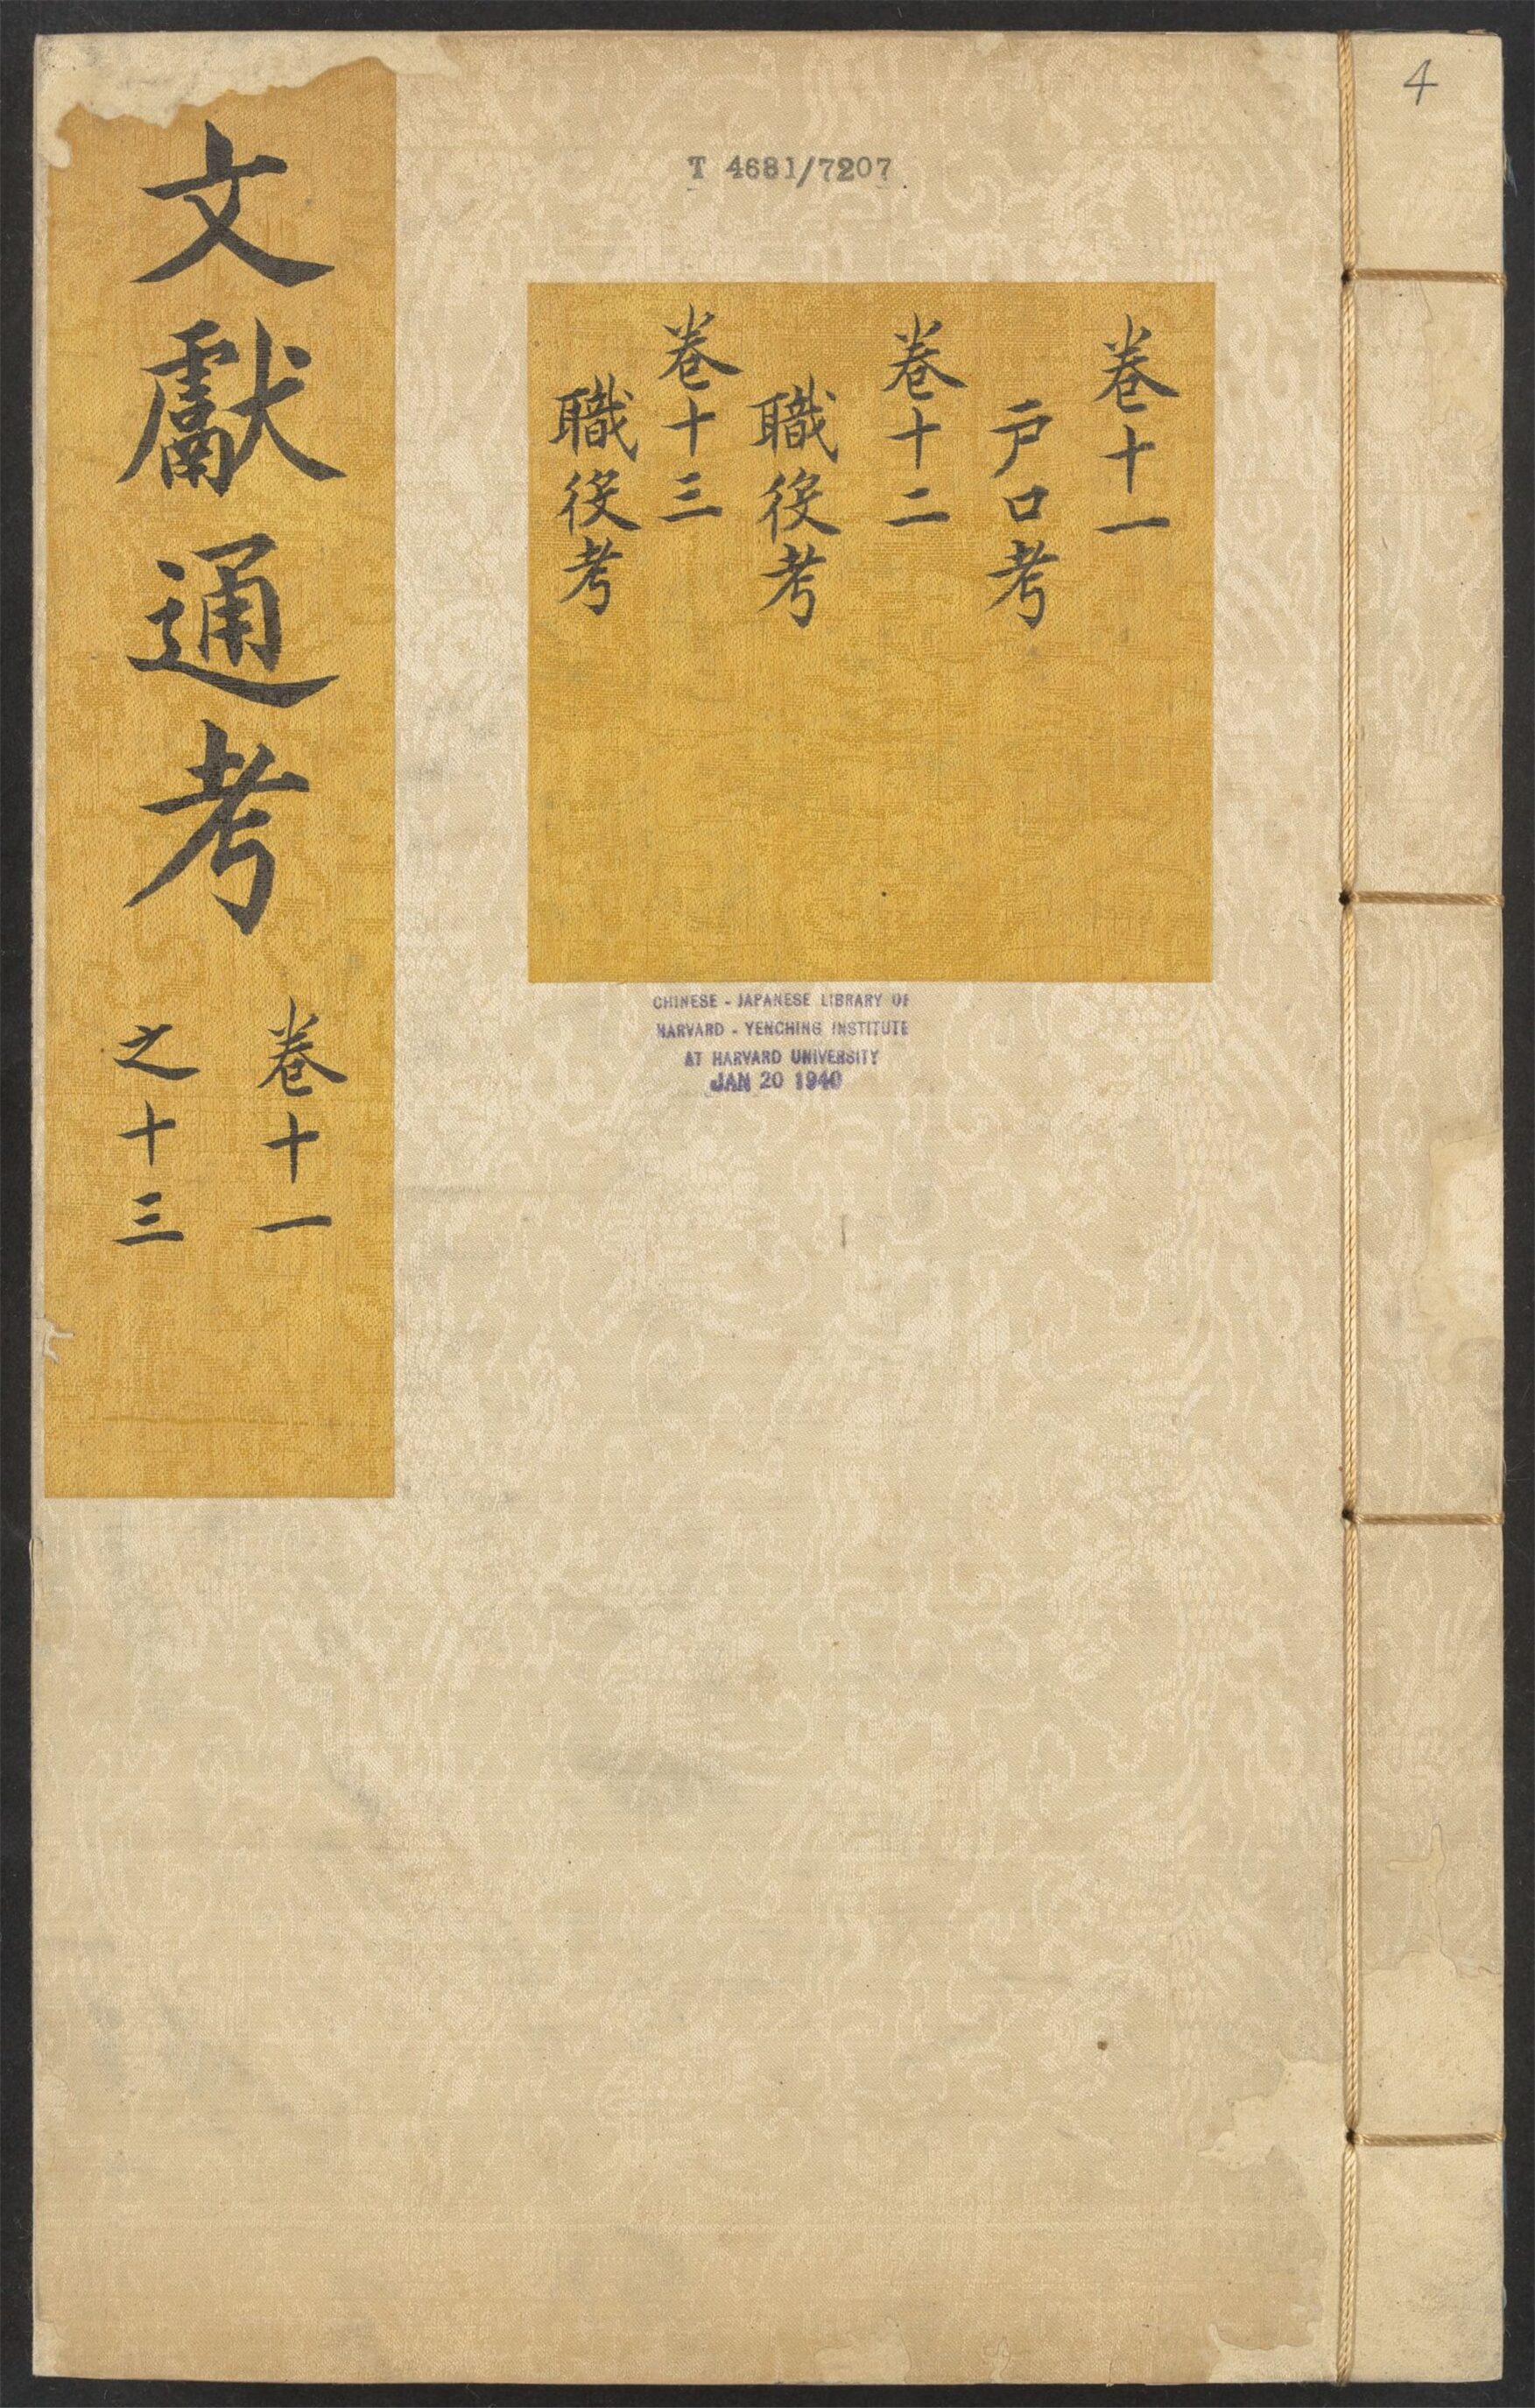 4
T 4681/7207
卷十一
戶口考
卷十二
職役考
卷十三
職役考
文獻通考
卷十一
之十三
CHINESE - JAPANESE LIBRARY OF
HARVARD - YENCHING INSTITUTE
AT HARVARD UNIVERSITY
JAN 20 1940